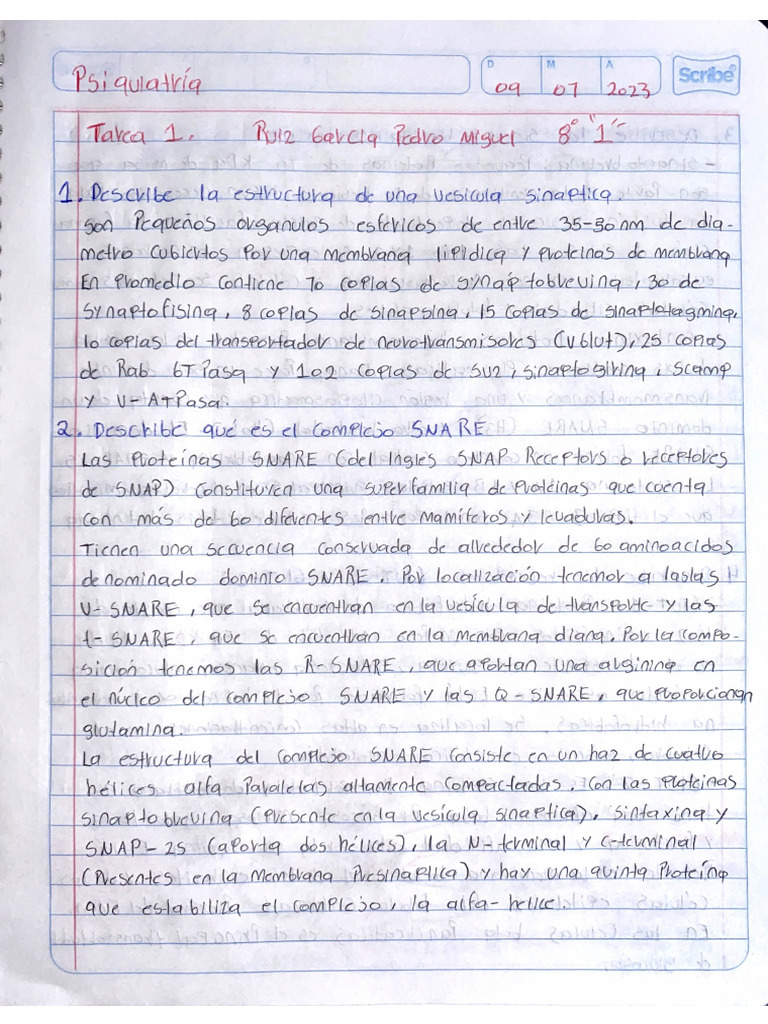 Psiquiatría
D M A
09 07 2023
Scribe
Tarea 1. Ruiz García Pedro Miguel 8° "1"
1. Describe la estructura de una vesícula sináptica.
son Pequeños organulos esféricos de entre 35-50 nm de diá-
metro cubiertos por una membrana lipídica y proteínas de membrana
En promedio contiene 70 copias de synaptobrevina, 30 de
synaptofisina, 8 copias de sinapsina, 15 copias de sinaptotagmina,
10 copias del transportador de neurotransmisores (vblut), 25 copias
de Rab GTPasa y 1o2 copias de SV2, sinaptogirina, Scamp
y V-ATPasa.
2. Describe qué es el complejo SNARE
Las Proteínas SNARE (del ingles SNAP Receptors o receptores
de SNAP) constituyen una superfamilia de proteínas que cuenta
con más de 60 diferentes entre Mamíferos y levaduras.
Tienen una secuencia conservada de alrededor de 60 aminoacidos
denominado dominio SNARE. Por localización tenemos a las las
V-SNARE, que se encuentran en la vesícula de transporte y las
t-SNARE, que se encuentran en la membrana diana. Por la compo-
sición tenemos las R-SNARE, que aportan una arginina en
el núcleo del complejo SNARE y las Q-SNARE, que proporcionan
glutamina.
La estructura del complejo SNARE consiste en un haz de cuatro
hélices alfa Paralelas altamente compactadas. Con las proteínas
sinaptobrevina (Presente en la vesícula sináptica), sintaxina y
SNAP-25 (aporta dos hélices), la N-terminal y C-terminal
(Presentes en la membrana Presináptica) y hay una quinta Proteína
que estabiliza el complejo, la alfa-helice.